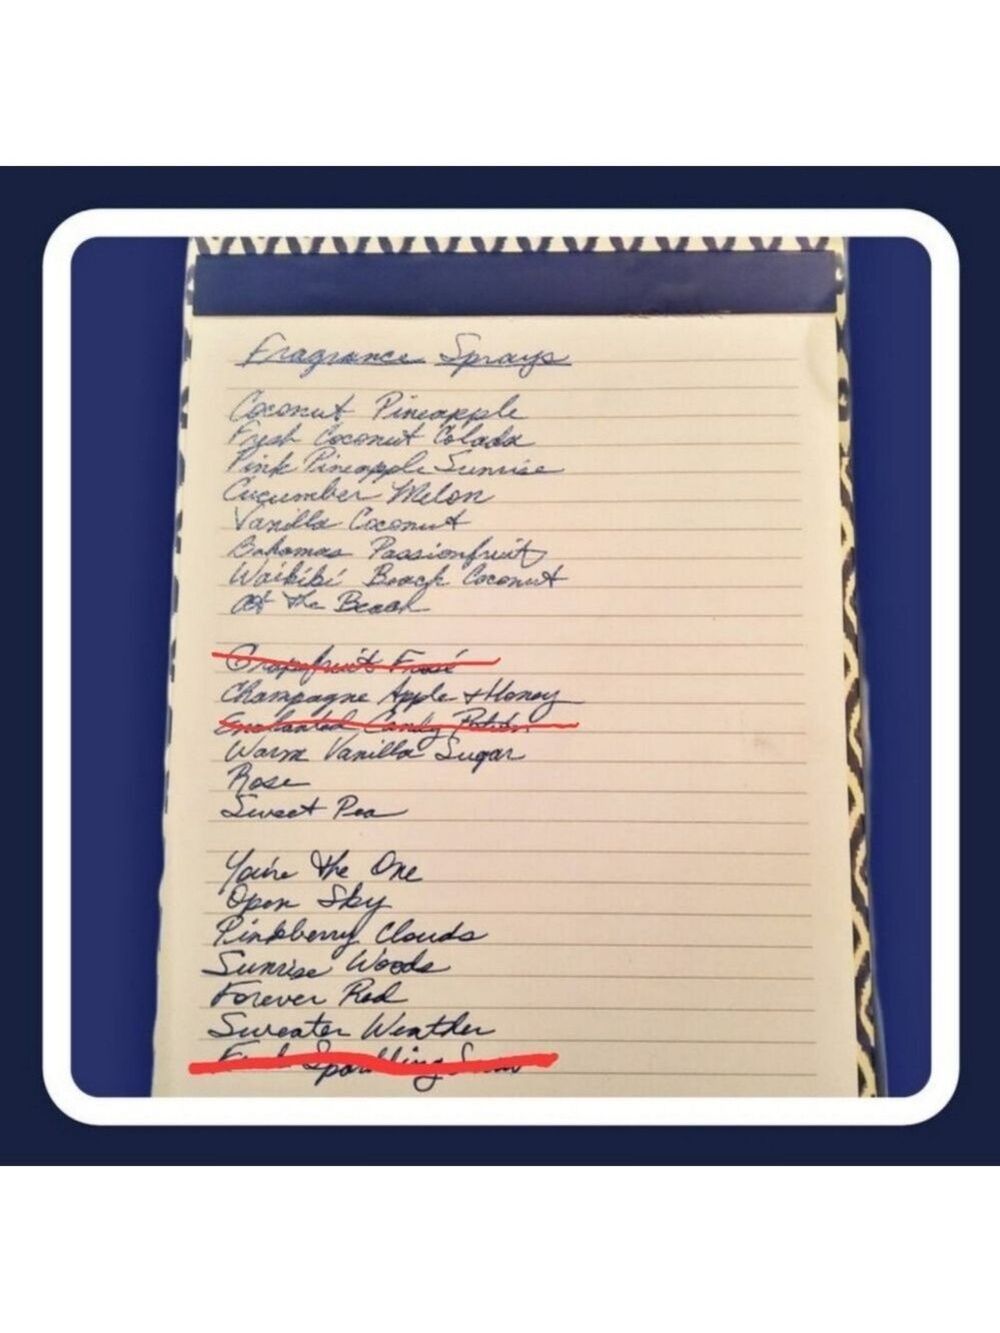 Fragrance Sprays
Coconut Pineapple
Fresh Coconut Colada
Pink Pineapple Sunrise
Cucumber Melon
Vanilla Coconut
Bahamas Passionfruit
Waikiki Beach Coconut
At the Beach
Grapefruit Frosé
Champagne Apple & Honey
Enchanted Candy Potion
Warm Vanilla Sugar
Rose
Sweet Pea
You're the One
Open Sky
Pinkberry Clouds
Sunrise Woods
Forever Red
Sweater Weather
Fresh Sparkling Snow